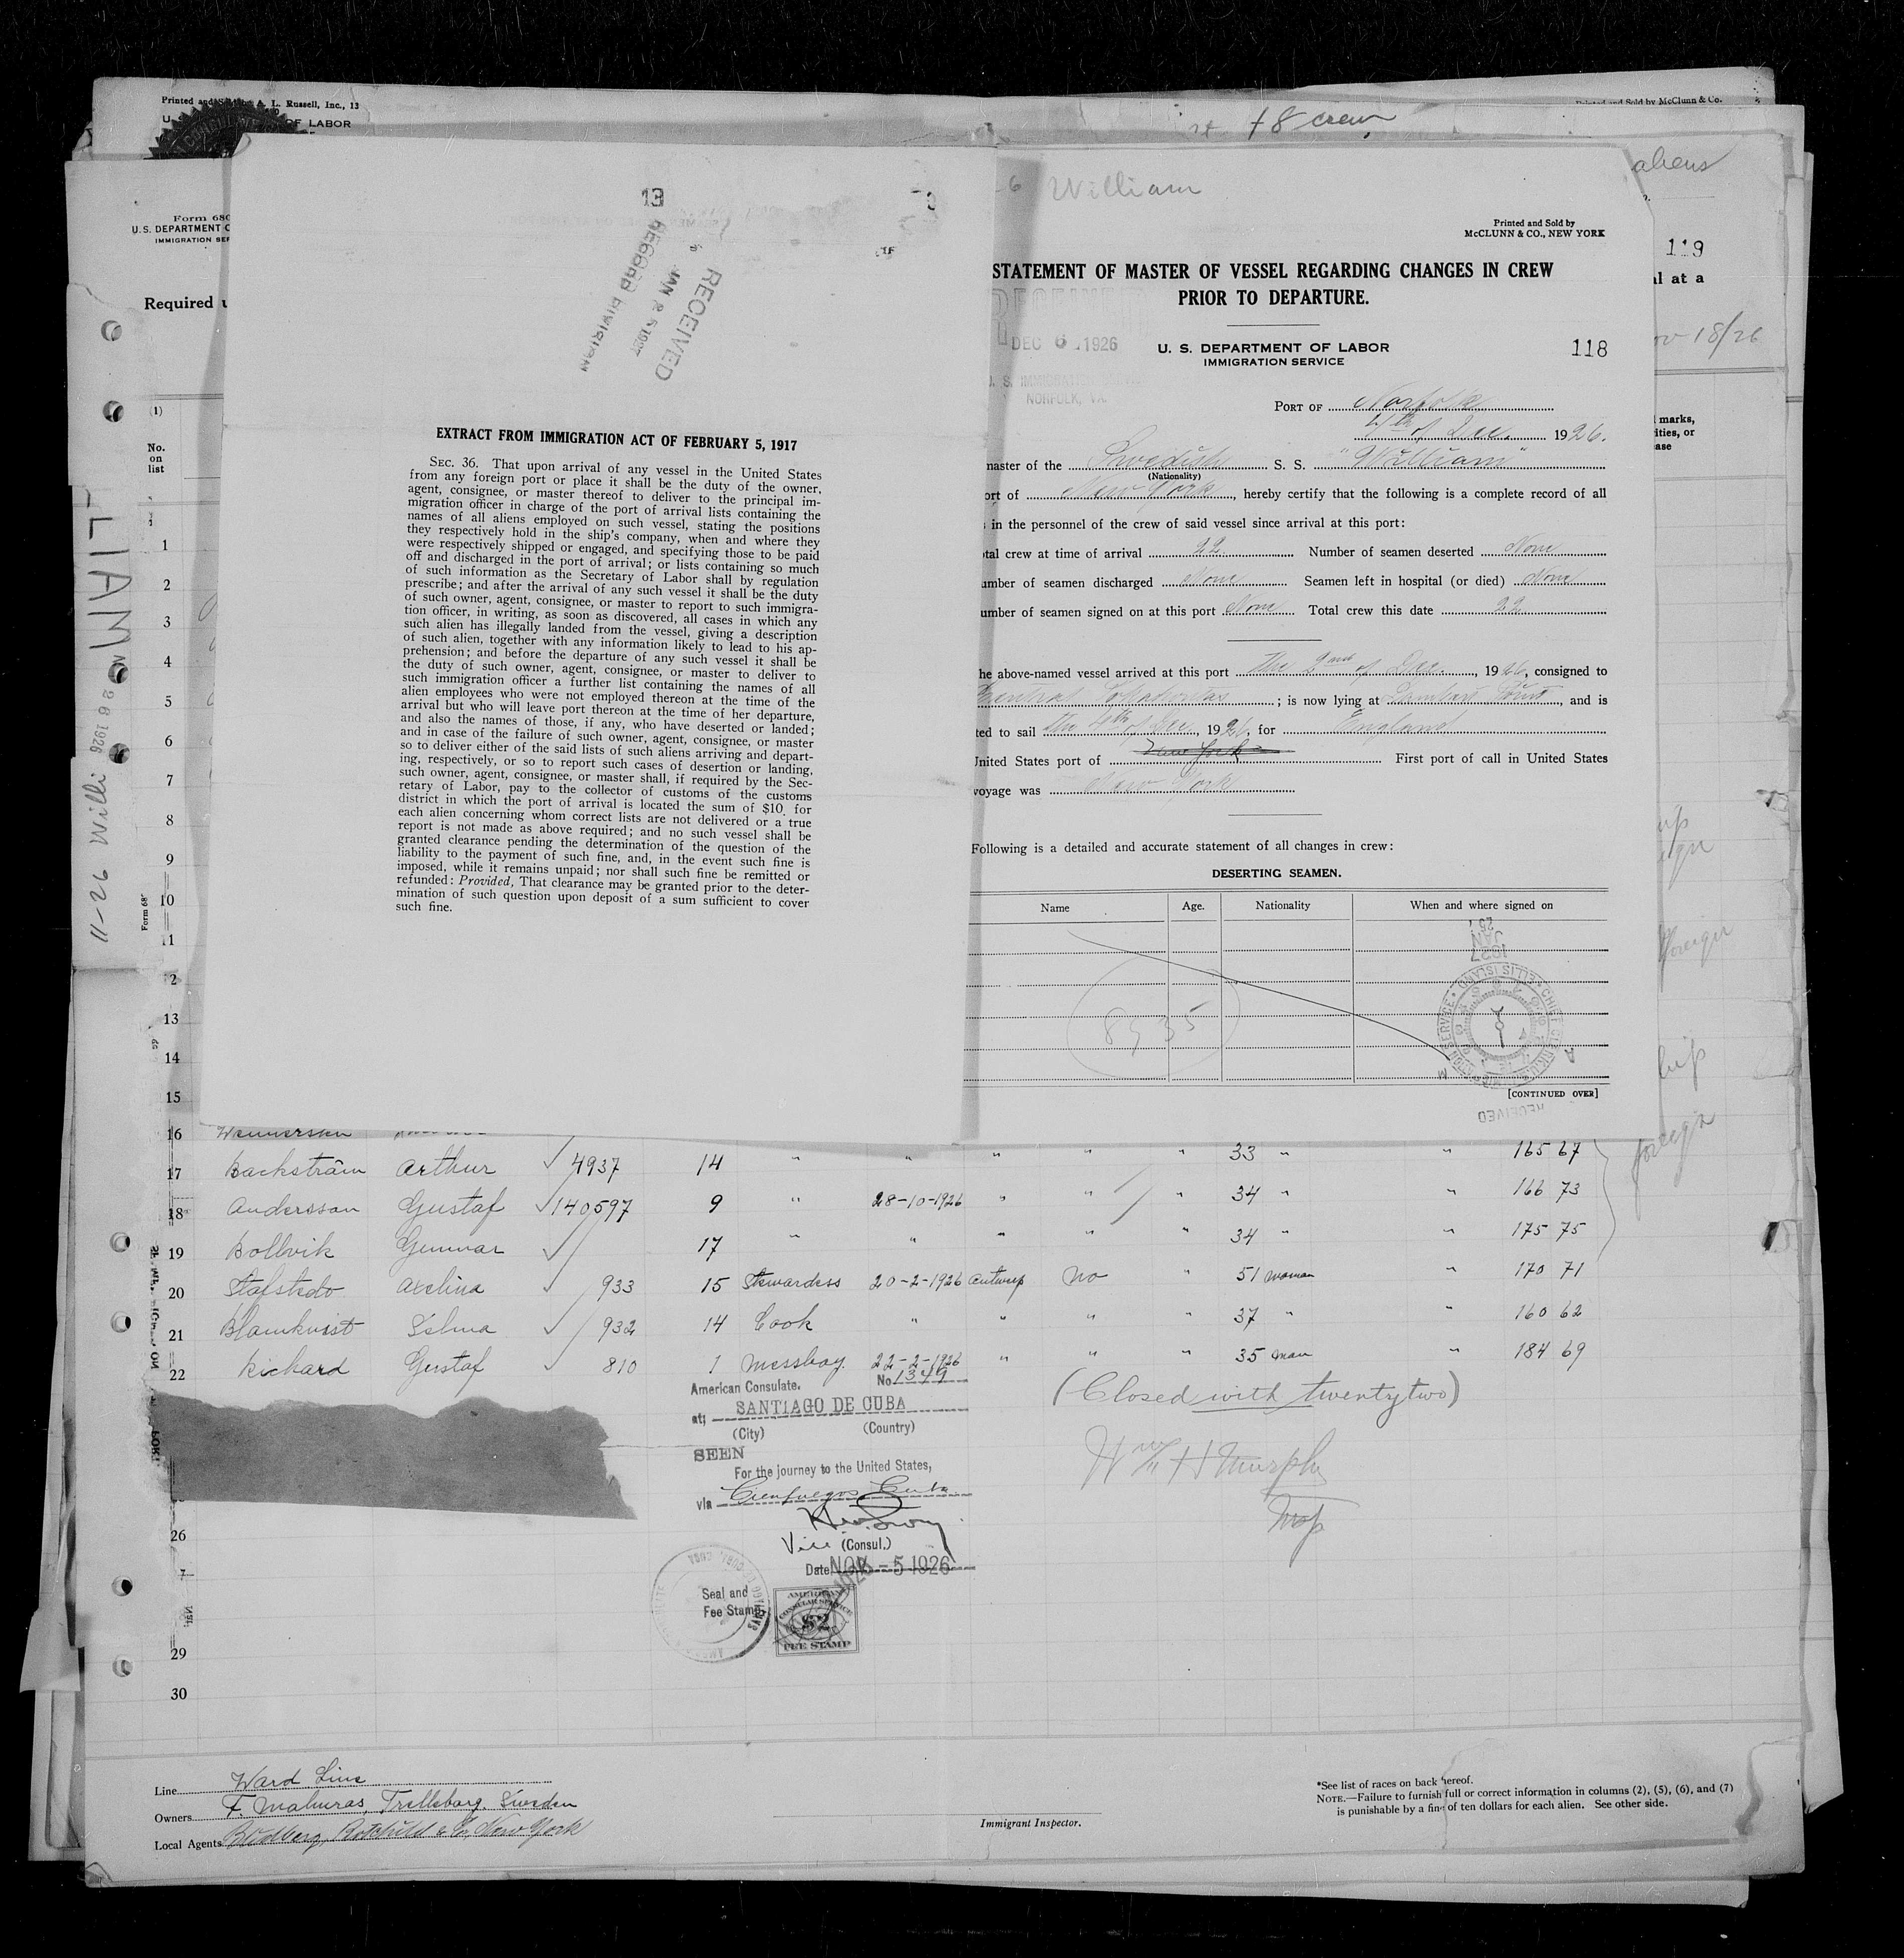 Printed and Sold by A. L. Russell, Inc., 13
OF LABOR
Printed and Sold by McClunn & Co.
+8 crew
aliens
Form 680
U. S. DEPARTMENT O
IMMIGRATION SER
Required u
119
al at a
ov 18/26
marks,
ities, or
ase
(1)
No.
on
list
LIAM
28 1926
11-26 Willi
13
RECEIVED
JAN 26 1927
RECORD DIVISION
EXTRACT FROM IMMIGRATION ACT OF FEBRUARY 5, 1917
SEC. 36. That upon arrival of any vessel in the United States
from any foreign port or place it shall be the duty of the owner,
agent, consignee, or master thereof to deliver to the principal im-
migration officer in charge of the port of arrival lists containing the
names of all aliens employed on such vessel, stating the positions
they respectively hold in the ship's company, when and where they
were respectively shipped or engaged, and specifying those to be paid
off and discharged in the port of arrival; or lists containing so much
of such information as the Secretary of Labor shall by regulation
prescribe; and after the arrival of any such vessel it shall be the duty
of such owner, agent, consignee, or master to report to such immigra-
tion officer, in writing, as soon as discovered, all cases in which any
such alien has illegally landed from the vessel, giving a description
of such alien, together with any information likely to lead to his ap-
prehension; and before the departure of any such vessel it shall be
the duty of such owner, agent, consignee, or master to deliver to
such immigration officer a further list containing the names of all
alien employees who were not employed thereon at the time of the
arrival but who will leave port thereon at the time of her departure,
and also the names of those, if any, who have deserted or landed;
and in case of the failure of such owner, agent, consignee, or master
so to deliver either of the said lists of such aliens arriving and depart-
ing, respectively, or so to report such cases of desertion or landing,
such owner, agent, consignee, or master shall, if required by the Sec-
retary of Labor, pay to the collector of customs of the customs
district in which the port of arrival is located the sum of $10 for
each alien concerning whom correct lists are not delivered or a true
report is not made as above required; and no such vessel shall be
granted clearance pending the determination of the question of the
liability to the payment of such fine, and, in the event such fine is
imposed, while it remains unpaid; nor shall such fine be remitted or
refunded: Provided, That clearance may be granted prior to the deter-
mination of such question upon deposit of a sum sufficient to cover
such fine.
-6 William
Printed and Sold by
McCLUNN & CO., NEW YORK
STATEMENT OF MASTER OF VESSEL REGARDING CHANGES IN CREW
PRIOR TO DEPARTURE.
RECEIVED
DEC 6 1926
U. S. IMMIGRATION SERVICE
NORFOLK, VA.
U. S. DEPARTMENT OF LABOR
IMMIGRATION SERVICE
118
PORT OF Norfolk
4th of Dec. 1926.
master of the Swedish S. S. "William"
(Nationality)
ort of New York, hereby certify that the following is a complete record of all
s in the personnel of the crew of said vessel since arrival at this port:
otal crew at time of arrival 22. Number of seamen deserted None
umber of seamen discharged None Seamen left in hospital (or died) None
umber of seamen signed on at this port None Total crew this date 22
he above-named vessel arrived at this port the 2nd of Dec., 1926, consigned to
Central; is now lying at Lamberts Point, and is
ted to sail the 4th of Dec, 1926, for England
United States port of New York First port of call in United States
voyage was New York
Following is a detailed and accurate statement of all changes in crew:
DESERTING SEAMEN.
Name Age. Nationality When and where signed on
1927
JAN
25
CHIEF CLERK, U.S. IMMIGRATION SERVICE ELLIS ISLAND
RECEIVED
[CONTINUED OVER]
foreign
foreign
1
2
3
4
5
6
7
8
9
10
11
12
13
14
15
16 Wennersten
17 Backström Arthur 4937 14 " " " " " 33 " " 165 67
18 Andersson Gustaf 140597 9 " 28-10-1926 " " " 34 " " 166 73
19 Bollvik Gunnar 17 " " " " " 34 " " 175 75
20 Stafstedt Axelina 933 15 Stewardess 20-2-1926 Antwerp No " 51 woman " 170 71
21 Blomkvist Selma 932 14 Cook " " " " 37 " " 160 62
22 Richard Gustaf 810 1 Messboy 22-2-1926 " " " 35 man " 184 69
(Closed with twentytwo)
Wm H Murphy
Insp
American Consulate. No. 1349
at; SANTIAGO DE CUBA
(City) (Country)
SEEN
For the journey to the United States,
via Cienfuegos Cuba
Vice (Consul.)
Date NOV -5 1926
Seal and
Fee Stamp
AMERICAN
CONSULAR SERVICE
$2
FEE STAMP
26
29
30
Line Ward Line
Owners F. Malmros, Trelleborg, Sweden
Local Agents New York
Immigrant Inspector.
*See list of races on back hereof.
NOTE.—Failure to furnish full or correct information in columns (2), (5), (6), and (7)
is punishable by a fine of ten dollars for each alien. See other side.